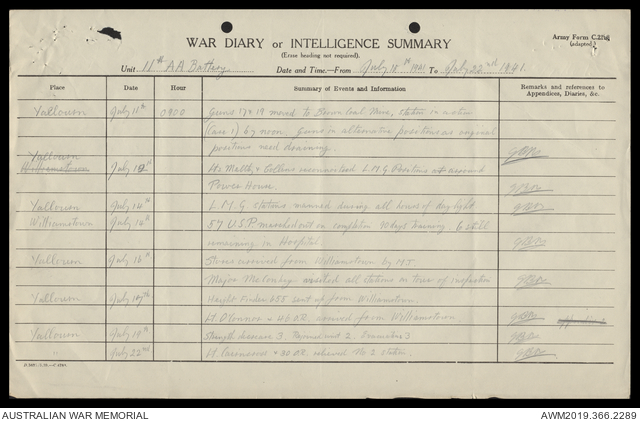 WAR DIARY or INTELLIGENCE SUMMARY
(Erase heading not required).
Army Form C.2118
(adapted).
Unit 11th AA Battery Date and Time.—From July 11th 1941 To July 22nd 1941.
Place Date Hour Summary of Events and Information Remarks and references to Appendices, Diaries, &c.
Yallourn July 11th 0900 Guns 17 & 19 moved to Brown Coal Mine, station in action
(Case 1) by noon. Guns in alternative positions as original
positions need draining.
Yallourn
Williamstown July 12th Lts Maltby & Collins reconnoitred L.M.G. Positions around
Power House.
Yallourn July 14th L.M.G. stations manned during all hours of daylight
Williamstown July 14th 57 U.S.P. marched out on completion 90 days training. 6 still
remaining in Hospital.
Yallourn July 15th Stores arrived from Williamstown by M.T.
Major visited all stations on tour of inspection
Yallourn July 17th Height Finder 655 sent up from Williamstown.
Lt. O'Connor & 46 O.R. arrived from Williamstown
Yallourn July 19th 3. 2. 3
" July 22nd Lt. & 30 O.R. relieved No 2 station.
AUSTRALIAN WAR MEMORIAL
AWM2019.366.2289